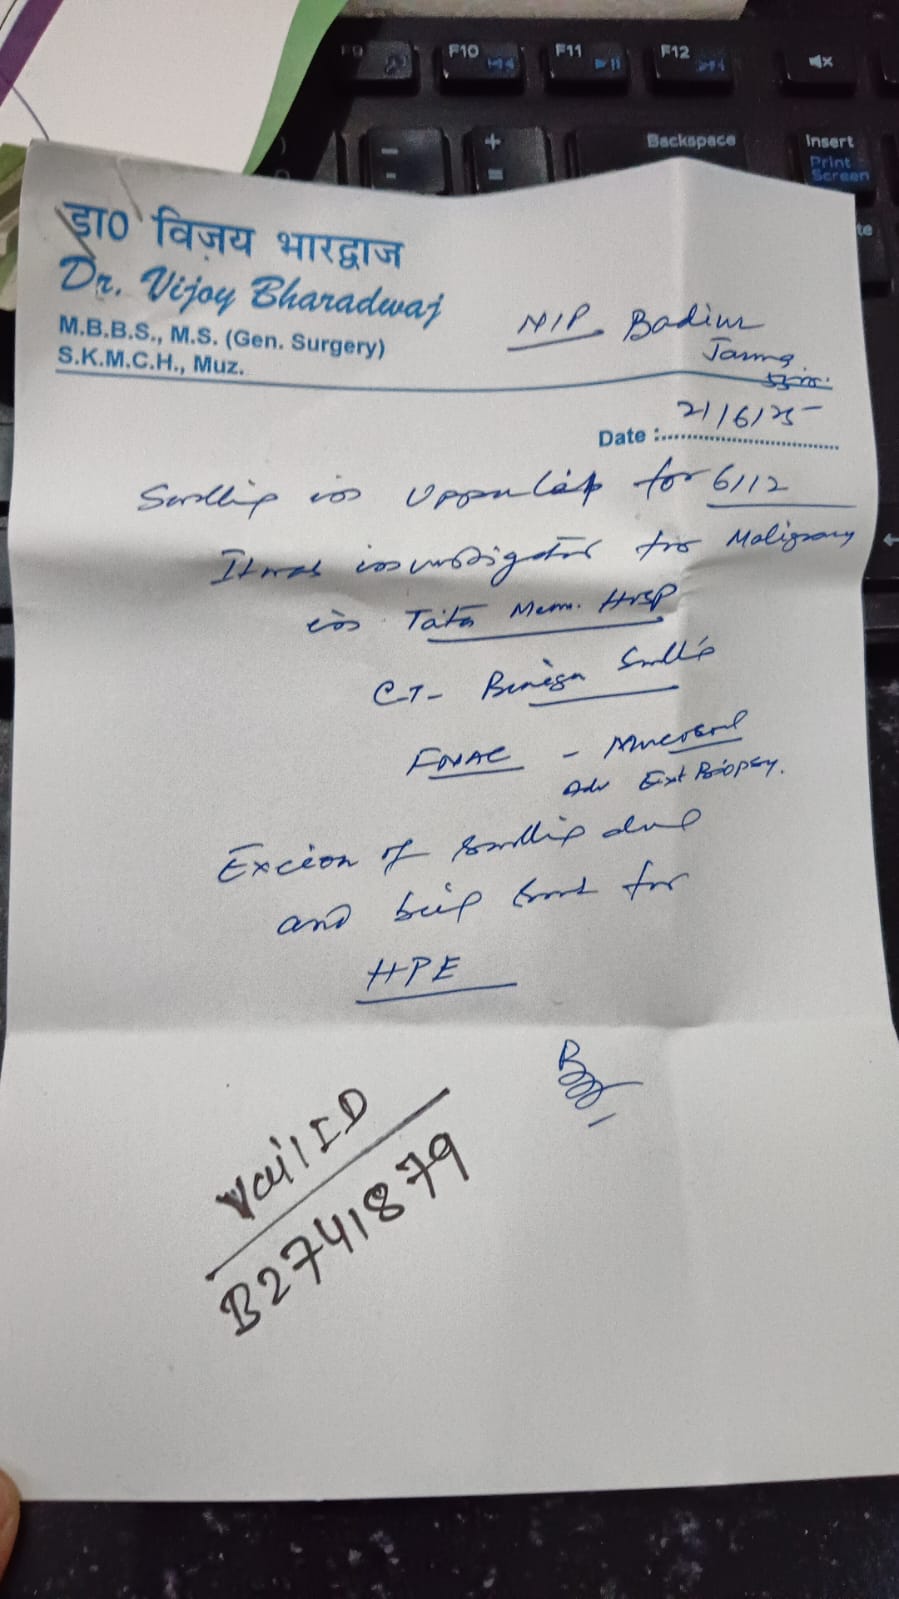 F9
F10
F11
F12
Backspace
Insert
Print
Screen
डा० विजय भारद्वाज
Dr. Vijoy Bharadwaj
M.B.B.S., M.S. (Gen. Surgery)
S.K.M.C.H., Muz.
N/P
Date : 21/6/25
Swelling in Upper lip for 6/12
It was investigated for Malignancy
in Tata Mem. Hosp
CT- Benign Swelling
FNAC -
Adv Ext Biopsy.
Excion of swelling done
and being sent for
HPE
Vail ID
B2741879